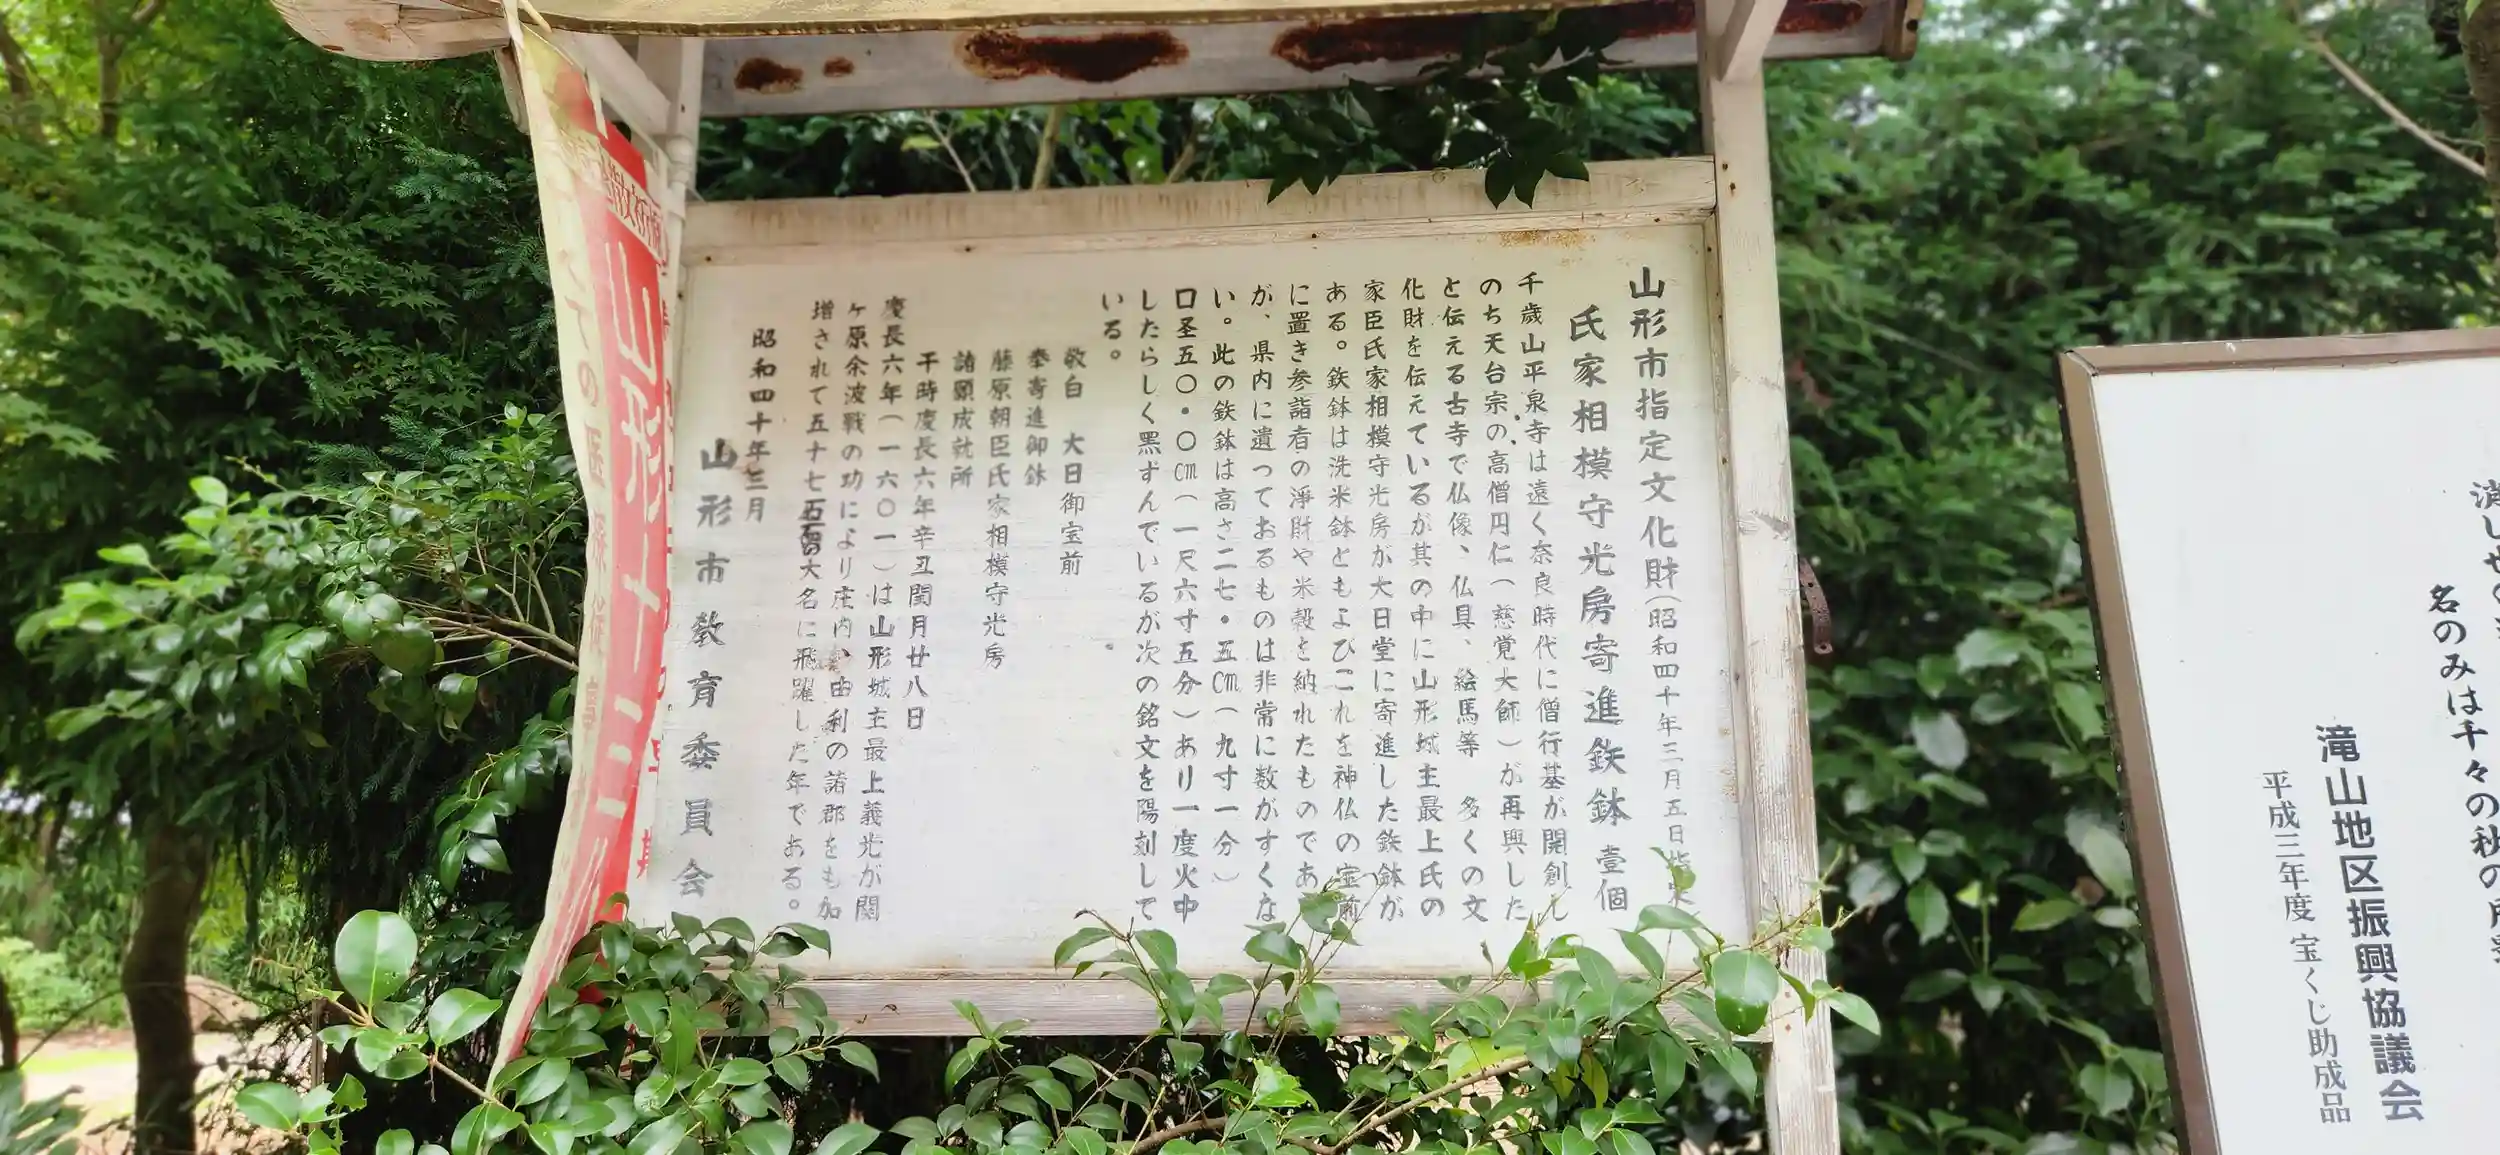 山形市指定文化財(昭和四十年三月五日指定)
氏家相模守光房寄進鉄鉢 壹個
千歳山平泉寺は遠く奈良時代に僧行基が開創し
のち天台宗の高僧円仁(慈覚大師)が再興した
と伝える古寺で仏像、仏具、絵馬等 多くの文
化財を伝えているが其の中に山形城主最上氏の
家臣氏家相模守光房が大日堂に寄進した鉄鉢が
ある。鉄鉢は洗米鉢ともよびこれを神仏の宝前
に置き参詣者の淨財や米穀を納れたものであ
が、県内に遺つておるものは非常に数がすくな
い。此の鉄鉢は高さ二七・五cm(九寸一分)
口圣五〇・〇cm(一尺六寸五分)あり一度火中
したらしく黒ずんでいるが次の銘文を陽刻して
いる。
敬白 大日御宝前
奉寄進御鉢
藤原朝臣氏家相模守光房
諸願成就所
干時慶長六年辛丑閏月廿八日
慶長六年(一六〇一)は山形城主最上義光が関
ヶ原余波戦の功により庄内、由利の諸郡をも加
増されて五十七万石の大名に飛躍した年である。
昭和四十年三月
山形市教育委員会
名のみは千々の秋の月
滝山地区振興協議会
平成三年度 宝くじ助成品
山形十三